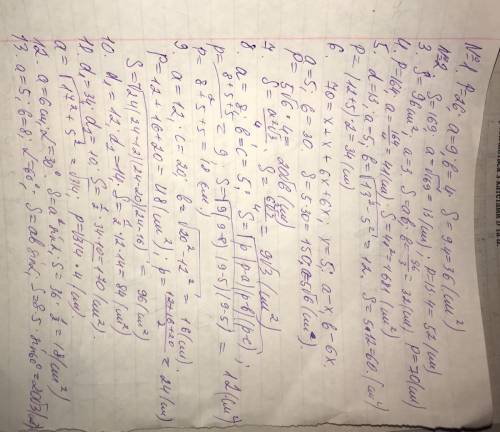 №1. P=26. a=9, b=4 S=9·4=36 (см²)
№2 S=169. a=√169=13 (см); P=13·4=52 (см)
3. S=96см², a=3. S=ab, b=S/a 96/3=32(см) P=70(см)
4. P=164, a=164/4=41(см) S=41²=1681 (см²)
5. d=13. a=5, b=√13²-5²=12, S=5·12=60. (см²)
P=(12+5)·2=34 (см)
6. 70=x+x+6x+6x, x=5; a-x, b-6x.
a=5, b=30 S=5·30=150
P=
7. S=a²√3/4 S=6²√3/4 = 9√3 (см²)
8. a=8; b=c=5; S=√p(p-a)(p-b)(p-c);
p=8+5+5/2=9; S=√9(9-8)(9-5)(9-5) = 12(см²)
P=8+5+5=18 (см)
9. a=12; c=20, b=√20²-12²=16(см).
P=12+16+20=48 (см²); p=12+16+20/2=24(см)
S=√24(24-12)(24-20)(24-16) = 96(см²)
10. d₁=12, d₂=14. S=½·12·14=84 (см²)
11. d₁=34. d₂=10. S=½·34·10=170 (см²).
a=√17²+5²=√314. P=√314·4 (см)
12. a=6см, ∠=30° S=a²sin∠, S=36·½=18(см²)
13. a=5; b=8, ∠=60°, S=ab sin∠, S=8·5·sin60°=20√3(см²)